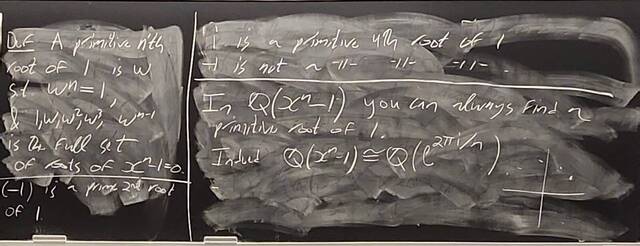 Def A primitive n'th
root of 1 is w
st wⁿ=1,
& 1, w, w², w³, wⁿ⁻¹
is the full set
of roots of xⁿ-1=0.
(-1) is a prim 2nd root
of 1.
i is a primitive 4th root of 1
-1 is not a -11- -11- -11-.
In Q(xⁿ-1) you can always find a
primitive root of 1.
Indeed Q(xⁿ-1) ≅ Q(e^{2πi/n})